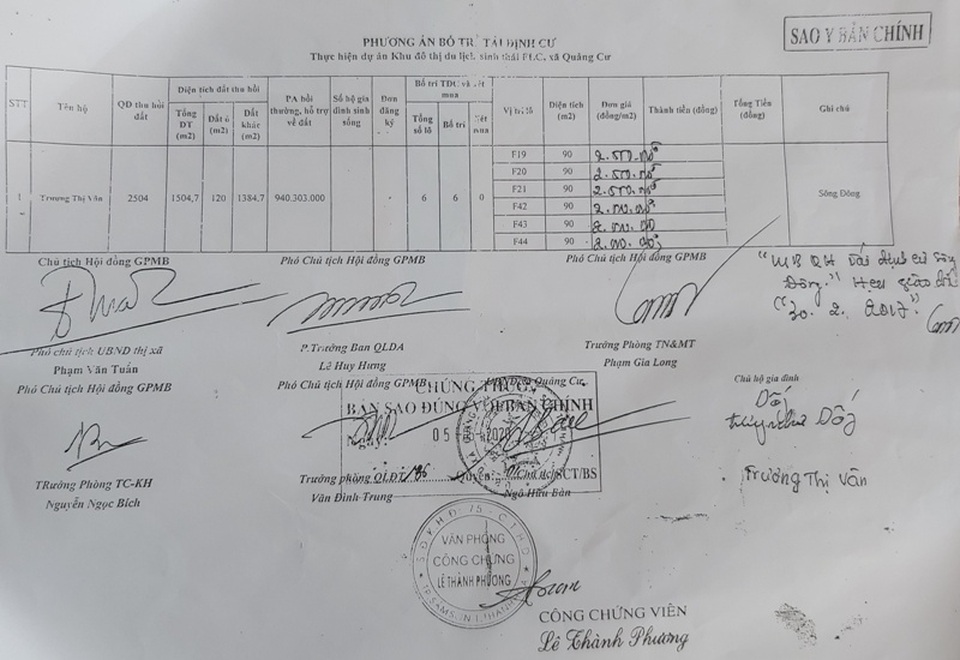 SAO Y BẢN CHÍNH
PHƯƠNG ÁN BỐ TRÍ TÁI ĐỊNH CƯ
Thực hiện dự án Khu đô thị du lịch sinh thái FLC, xã Quảng Cư
STT | Tên hộ | QĐ thu hồi đất | Diện tích đất thu hồi | PA bồi thường, hỗ trợ về đất | Số hộ gia đình sinh sống | Đơn đăng ký | Bố trí TĐC và xét mua | Vị trí lô | Diện tích (m2) | Đơn giá (đồng/m2) | Thành tiền (đồng) | Tổng Tiền (đồng) | Ghi chú
Tổng DT (m2) | Đất ở (m2) | Đất khác (m2) | Tổng số lô | Bố trí | Xét mua
1 | Trương Thị Vân | 2504 | 1504,7 | 120 | 1384.7 | 940.303.000 | 6 | 6 | 0 | Sông Đông
F19 90
F20 90
F21 90
F42 90
F43 90
F44 90
Chủ tịch Hội đồng GPMB
Phó Chủ tịch Hội đồng GPMB
Phó Chủ tịch Hội đồng GPMB
Phó chủ tịch UBND thị xã
Phạm Văn Tuấn
P.Trưởng Ban QLDA
Lê Huy Hưng
Trưởng Phòng TN&MT
Phạm Gia Long
Phó Chủ tịch Hội đồng GPMB
Phó Chủ tịch Hội đồng GPMB
UBND xã Quảng Cư
Chủ hộ gia đình
CHỨNG THỰC
BẢN SAO ĐÚNG VỚI BẢN CHÍNH
Ngày: 05
2020
Trương Thị Vân
TRưởng Phòng TC-KH
Nguyễn Ngọc Bích
Trưởng phòng QLĐT
Văn Đình Trung
Quyển: SCT/BS
Chủ tịch
Ngô Hữu Bàn
VĂN PHÒNG
CÔNG CHỨNG
LÊ THÀNH PHƯƠNG
CÔNG CHỨNG VIÊN
Lê Thành Phương